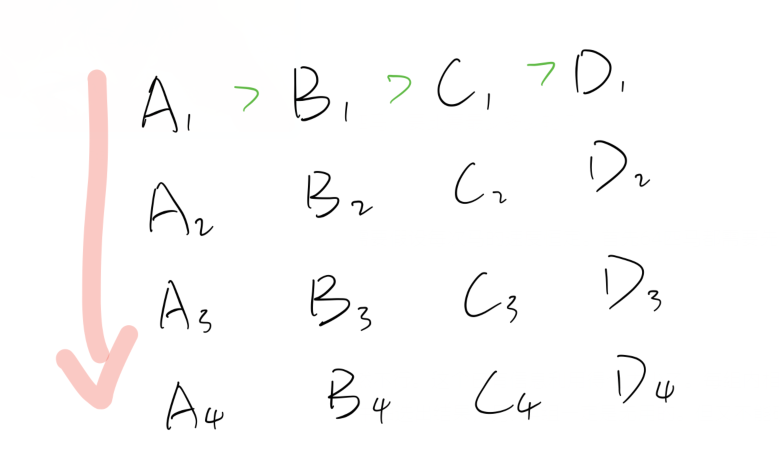 A₁ > B₁ > C₁ > D₁
A₂ B₂ C₂ D₂
A₃ B₃ C₃ D₃
A₄ B₄ C₄ D₄